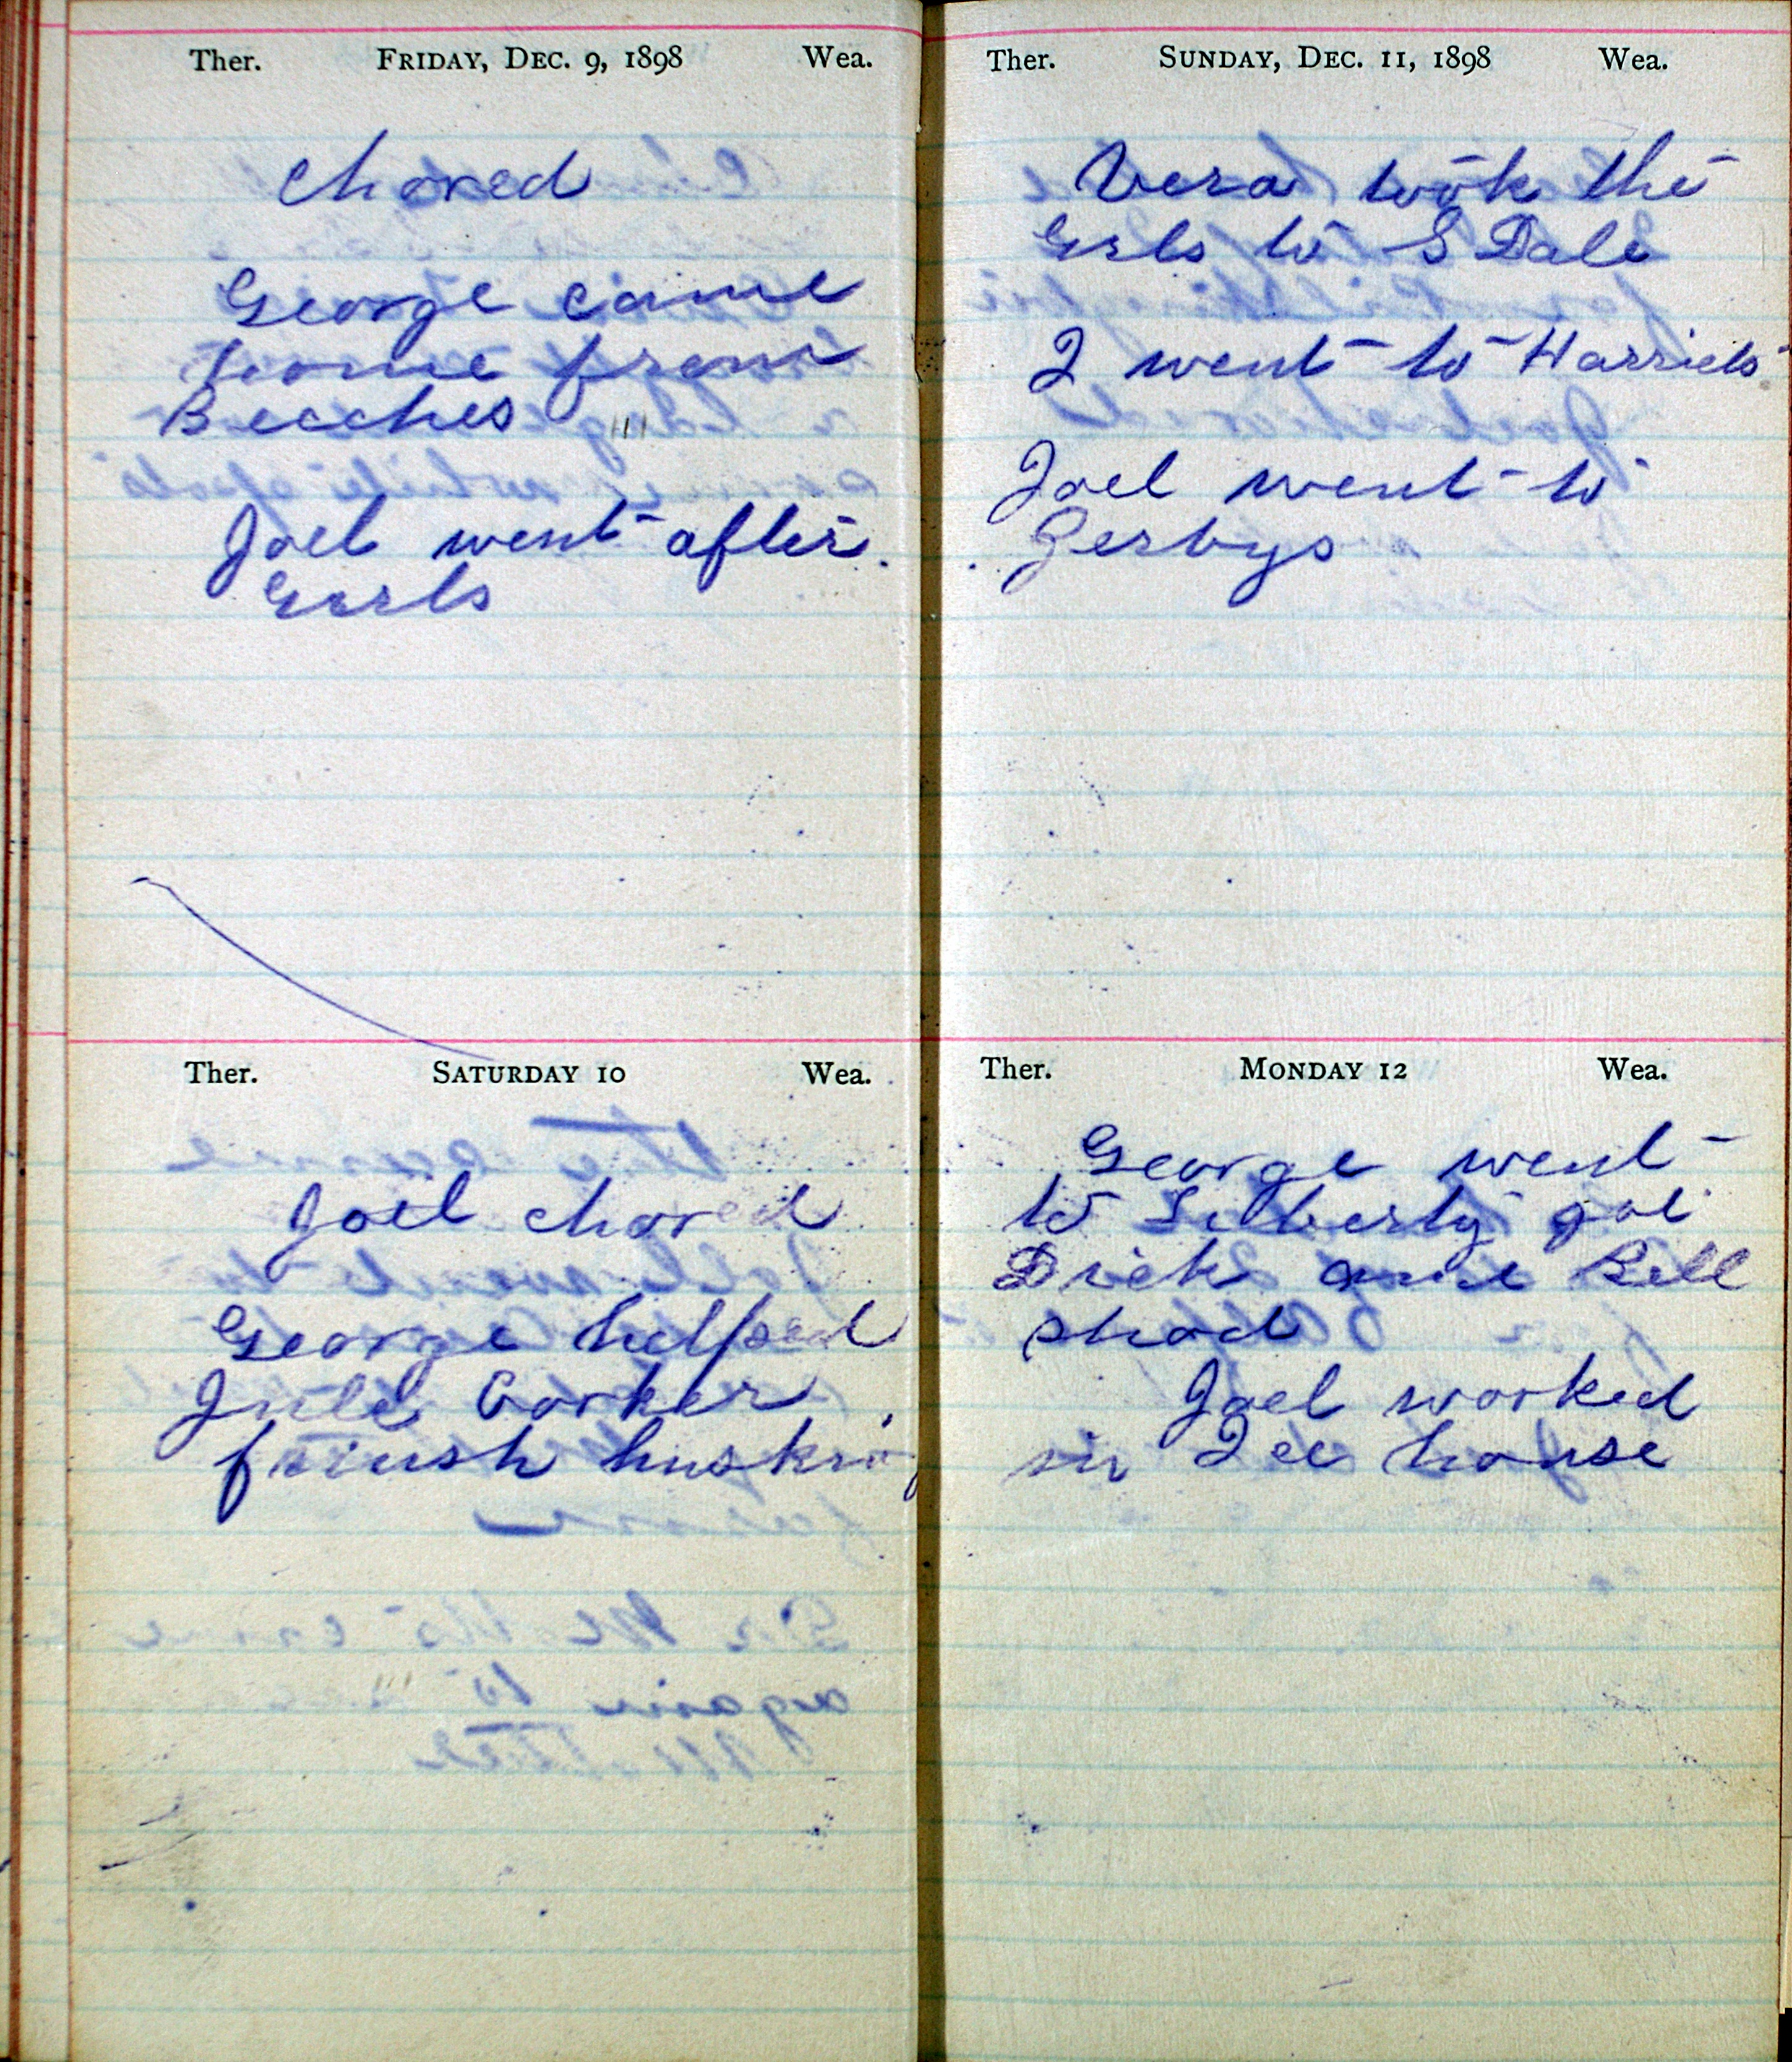 Ther. FRIDAY, DEC. 9, 1898 Wea.
Chored
George came
home from
Beeches
Joel went after
Girls
Ther. SATURDAY 10 Wea.
Joel chored
George helped
finish husking
Ther. SUNDAY, DEC. 11, 1898 Wea.
Vera took the
Grls to S Dale
I went to Harriets
Joel went to
Ther. MONDAY 12 Wea.
George went
to Liberty got
Dick and Bell
shod
Joel worked
in Ice house